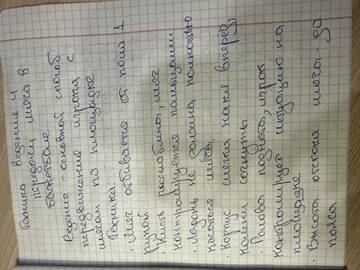 Техника ведения и
передачи мяча в
баскетболе.
Ведение - основной способ
передвижения игрока с
мячом по площадке
Техника:
· Мяч отбивается от пола 1
рукой
· Кисть расслаблена, мяч
контролируется пальцами
· Ладонь не должна полностью
касаться мяча,
· корпус слегка накл вперед,
колени согнуты
· Голова поднята, игрок
контролирует ситуацию на
площадке
· Высота отскока мяча - до
пояса